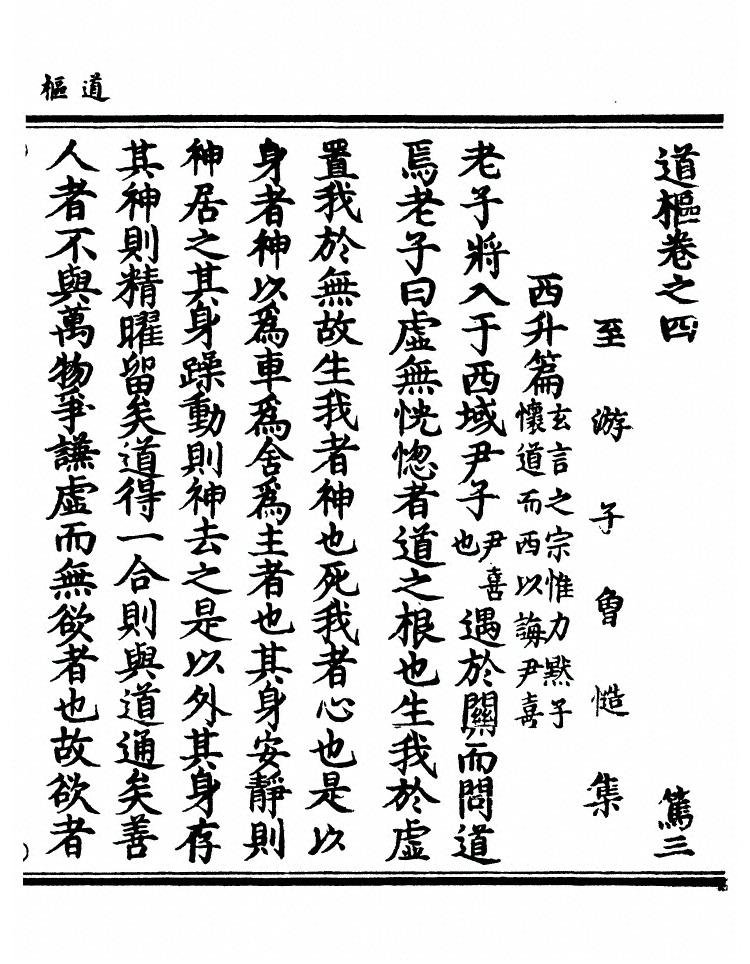 道樞
道樞卷之四 篤三
至游子曾慥集
西升篇玄言之宗惟力默子懷道而西以誨尹喜
老子將入于西域尹子尹喜也遇於關而問道
焉老子曰虛無恍惚者道之根也生我於虛
置我於無故生我者神也死我者心也是以
身者神以爲車爲舍爲主者也其身安靜則
神居之其身躁動則神去之是以外其身存
其神則精曜留矣道得一合則與道通矣善
人者不與萬物爭謙虛而無欲者也故欲者